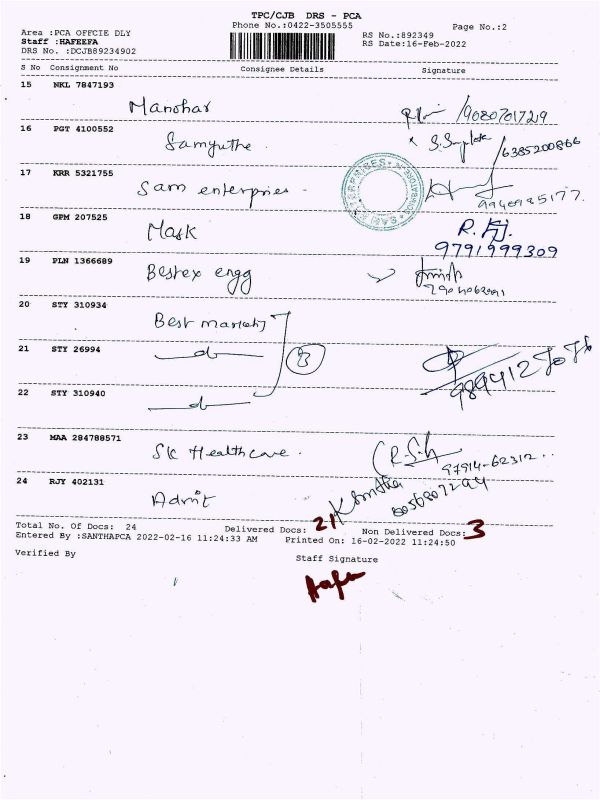 TPC/CJB DRS - PCA
Phone No.:0422-3505555
Page No.:2
Area :PCA OFFCIE DLY
RS No.:892349
Staff :HAFEEFA
RS Date:16-Feb-2022
DRS No. :DCJB89234902
S No Consignment No Consignee Details Signature
15 NKL 7847193
Manohar 9080701729
16 PGT 4100552
Samyuthe 6385200866
17 KRR 5321755
Sam enterprises
18 GPM 207525
Mask R.
9791999309
19 PLN 1366689
Bestex engg
20 STY 310934
Best
21 STY 26994
3
22 STY 310940
23 MAA 284788571
SK Healthcare. 97914-62312
24 RJY 402131
Admit
Total No. Of Docs: 24 Delivered Docs: 21 Non Delivered Docs: 3
Entered By :SANTHAPCA 2022-02-16 11:24:33 AM Printed On: 16-02-2022 11:24:50
Verified By Staff Signature